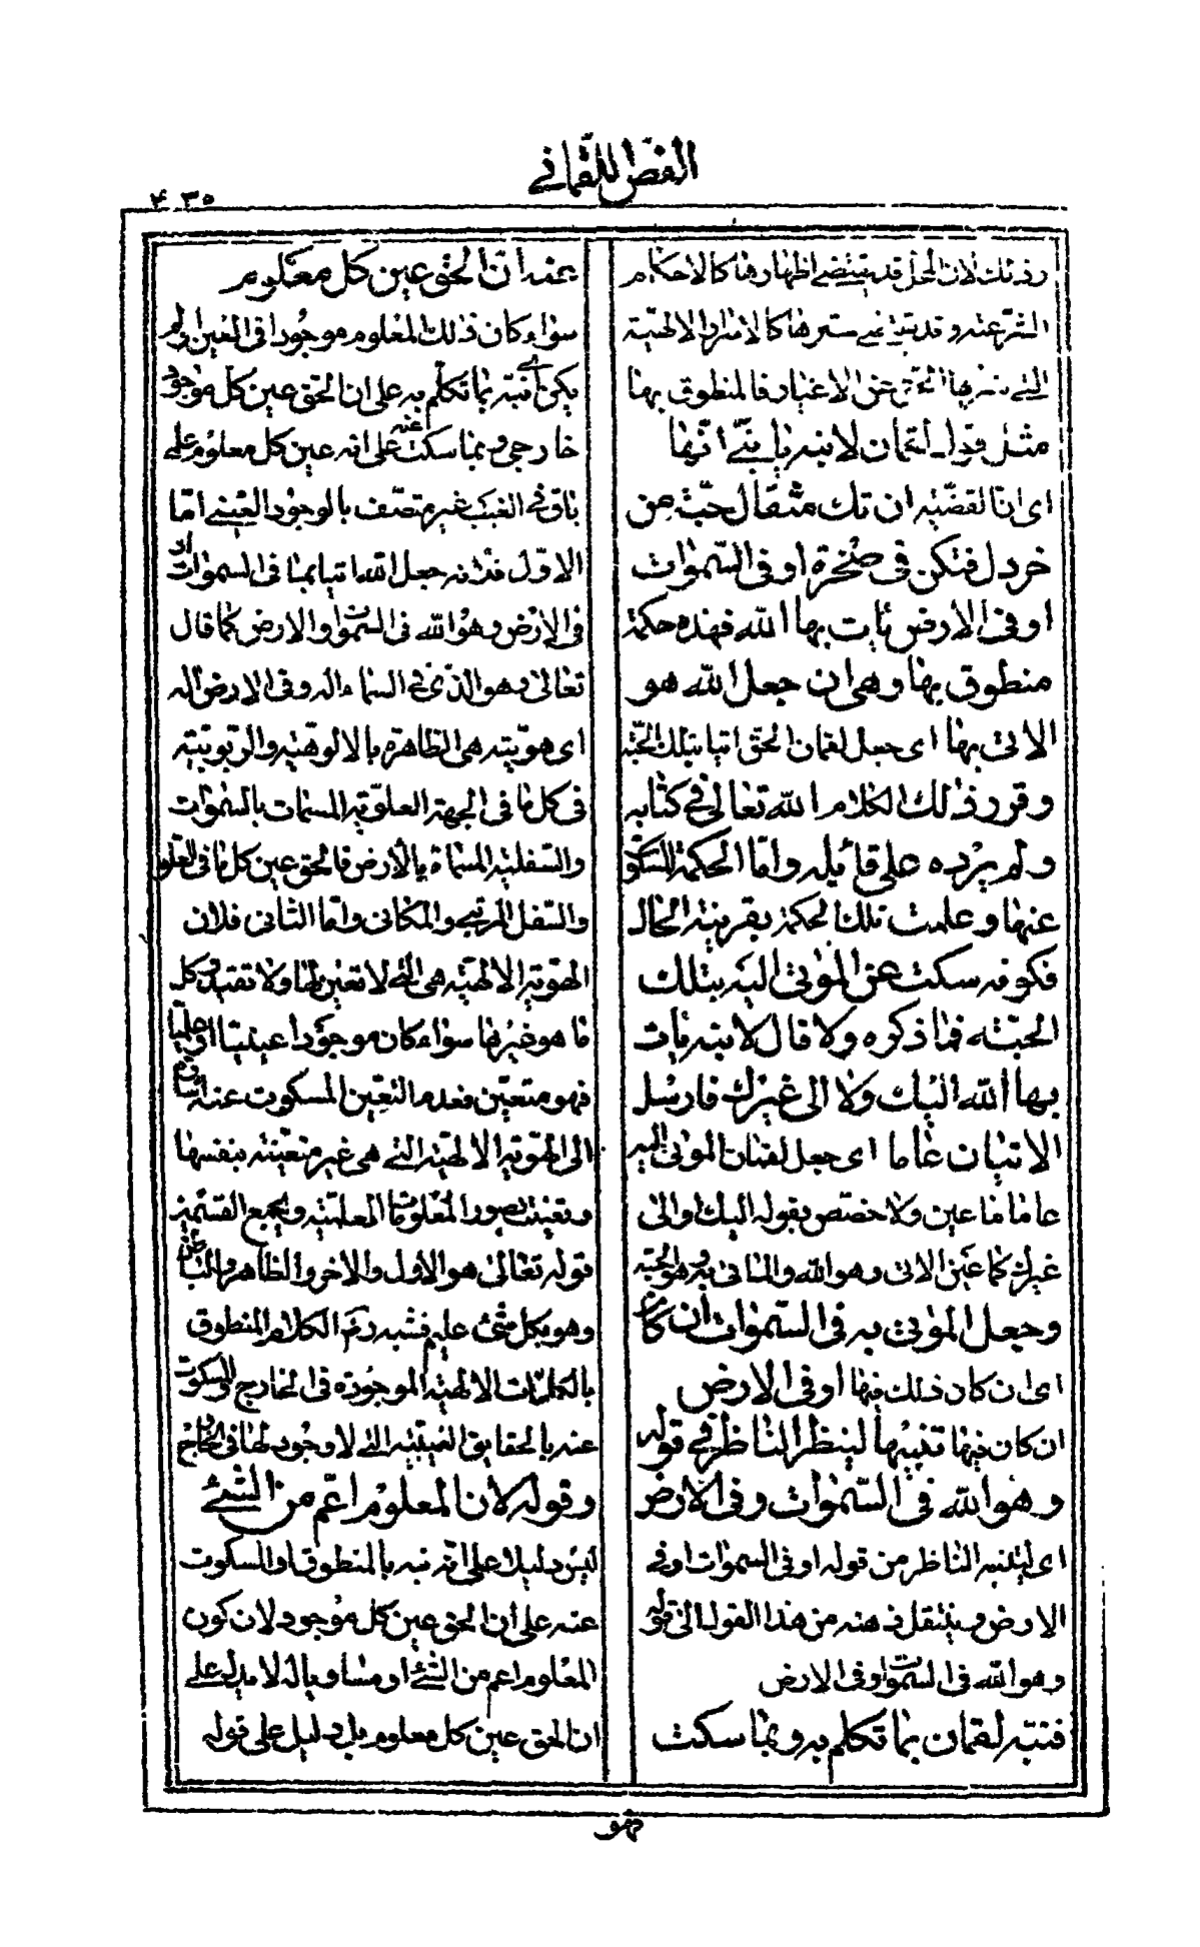 الفص اللقمانی
۴۳۵
وذلك لان المحل قد يقتضی اظهارها كالاحكام
الشرعیة وقد یقتضی سترها كالاسرار الالهیة
التی سترها الحق عن الاغیار فالمنطوق بها
مثل قول لقمان لابنه یا بنی انها
ای ان القصة ان تك مثقال حبة من
خردل فتكن فی صخرة او فی السموات
او فی الارض یأت بها الله فهذه حكمة
منطوق بها وهی ان جعل الله هو
الاتی بها ای جعل لقمان الحق اتیا بتلك الحبة
وقرر ذلك الكلام الله تعالی فی كتابه
ولم یرده علی قائله واما الحكمة المسكوت
عنها وعلمت تلك الحكمة بقرینة الحال
فكونه سكت عن المؤتی الیه بتلك
الحبة فما ذكره ولا قال لابنه یأت
بها الله الیك ولا الی غیرك فارسل
الاتیان عاما ای جعل لقمان المؤتی الیه
عاما ما عین ولا خصص بقوله الیك او الی
غیرك كما عین الاتی وهو الله والمأتی به وهو الحبة
وجعل المؤتی به فی السموات ان كان
ای ان كان ذلك فیها او فی الارض
ان كان فیها تنبیها لینظر الناظر فی قوله
وهو الله فی السموات وفی الارض
ای لیتنبه الناظر من قوله او فی السموات او فی
الارض وینتقل ذهنه من هذا القول الی قوله
وهو الله فی السموات وفی الارض
فنبه لقمان بما تكلم به وبما سكت
عنه ان الحق عین كل معلوم
سواء كان ذلك المعلوم موجودا فی العین او لم
یكن ای نبه بما تكلم به علی ان الحق عین كل موجود
خارجی وبما سكت عنه علی انه عین كل معلوم علمی
باق فی الغیب غیر متصف بالوجود العینی اما
الاول فلانه جعل الله اتیا بما فی السموات او
فی الارض وهو الله فی السموات والارض كما قال
تعالی وهو الذی فی السماء اله وفی الارض اله
ای هویته هی الظاهرة بالالوهیة والربوبیة
فی كل ما فی الجهة العلویة المسمات بالسموات
والسفلیة المسماة بالارض فالحق عین كل ما فی العلو
والسفل المرتبی والمكانی واما الثانی فلان
الهویة الالهیة هی التی لا تعین لها ولا تقید وكل
ما هو غیرها سواء كان موجودا عینیا او علمیا
فهو متعین فعدم التعین المسكوت عنه
الی الهویة الالهیة التی هی غیر متعینة بنفسها
وتعینت بصور المعلومات العلمیة ویجمع القسمین
قوله تعالی هو الاول والاخر والظاهر والباطن
وهو بكل شیء علیم فشبه الكلام المنطوق
بالكلمات الالهیة الموجودة فی الخارج والمسكوت
عنه بالحقایق الغیبیة التی لا وجود لها فی الخارج
وقوله لان المعلوم اعم من الشئ
لیس دلیلا علی انه نبه بالمنطوق او المسكوت
عنه علی ان الحق عین كل موجود لان كون
المعلوم اعم من الشئ او مساویا له لا یدل علی
ان الحق عین كل معلوم بل دلیل علی قوله
فهو